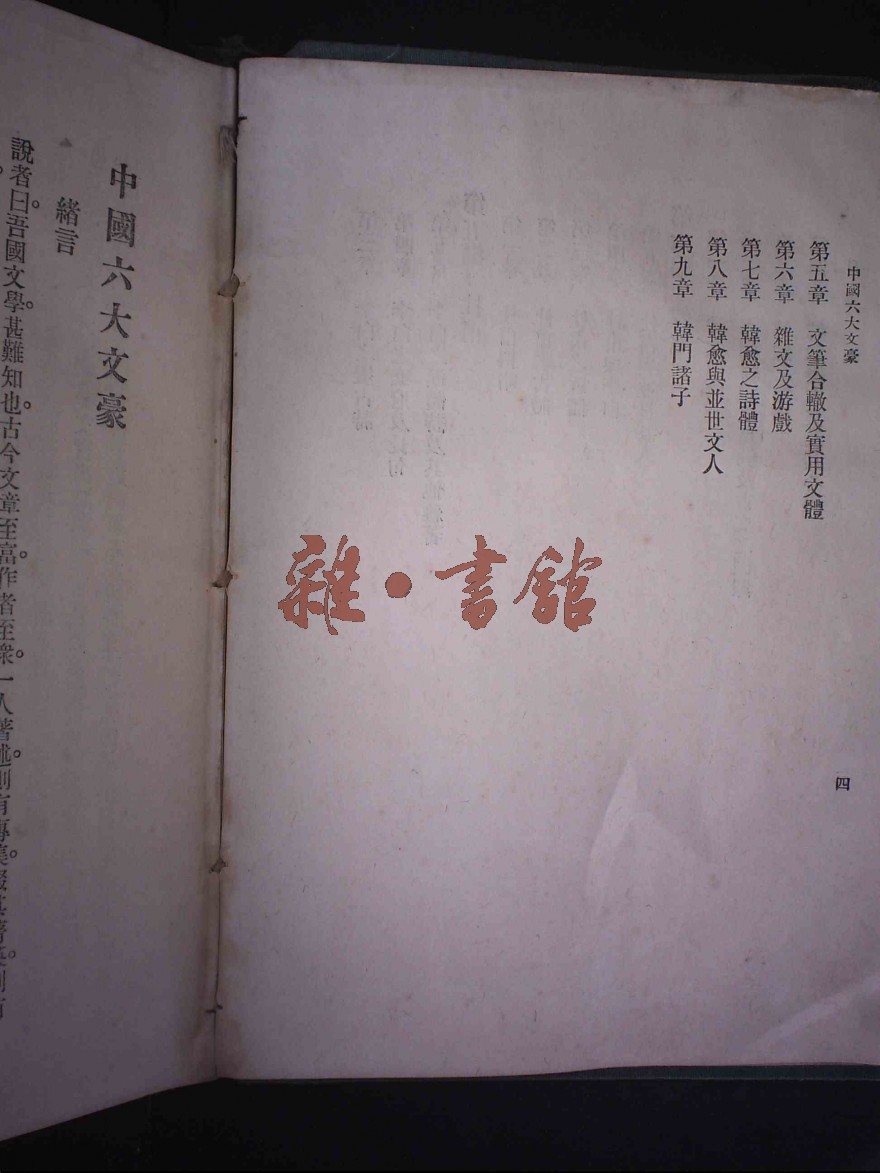 中國六大文豪
第五章 文筆合轍及實用文體
第六章 雜文及游戲
第七章 韓愈之詩體
第八章 韓愈與並世文人
第九章 韓門諸子
四
雜·書館
中國六大文豪
緒言
說者曰。吾國文學。甚難知也。古今文章至富。作者至衆。一人著述。則有專集。